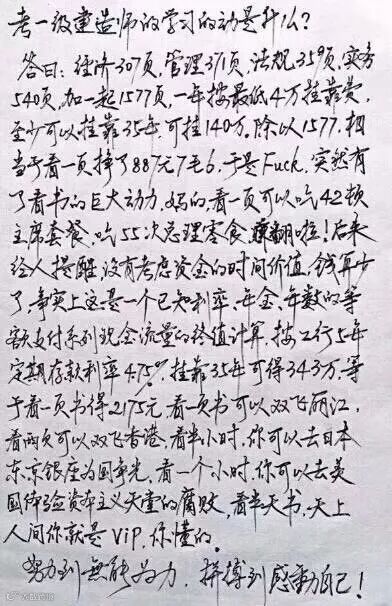 考一级建造师的学习的动是什么?
答曰:经济307页,管理371页,法规359页,实务
540页,加一起1577页,一年按最低4万挂靠费,
至少可以挂靠35年,可挂140万。除以1577,相
当于看一页挣了887元7毛6,于是Fuck,突然有
了看书的巨大动力,妈的,看一页可以吃42顿
主席套餐,吃55次总理零食,赚翻啦!后来
经人提醒,没有考虑资金的时间价值,钱算少
了,事实上这是一个已知利率、年金、年数的等
额支付系列现金流量的终值计算,按工行5年
定期存款利率4.75%,挂靠35年可得343万,等
于看一页书得2175元,看一页书可以双飞丽江,
看两页可以双飞香港,看半小时,你可以去日本
东京银座为国争光,看一个小时,你可以去美
国体验资本主义天堂的腐败,看半天书,天上
人间你就是VIP,你懂的。
努力到無能为力,拼搏到感動自己!